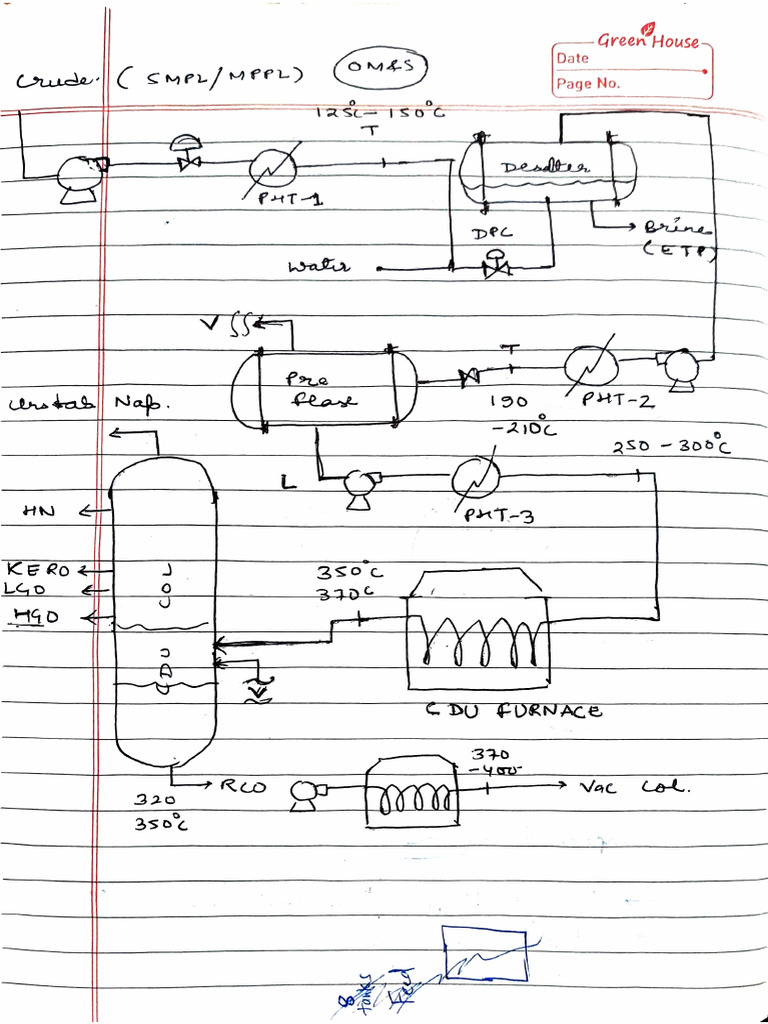 Green House
Date
Page No.
Crude. ( SMPL/MPPL)
OM&S
125°C - 150°C
T
PHT-1
Desalter
DPC
Brine
(ETP)
Water
V
Pre
flash
T
190
-210°C
PHT-2
Unstab Nap.
250 - 300°C
L
PHT-3
HN
KERO
LGO
HGO
CDU COL
350°C
370°C
V
CDU FURNACE
RCO
320
350°C
370
-400
Vac Col.
Feed